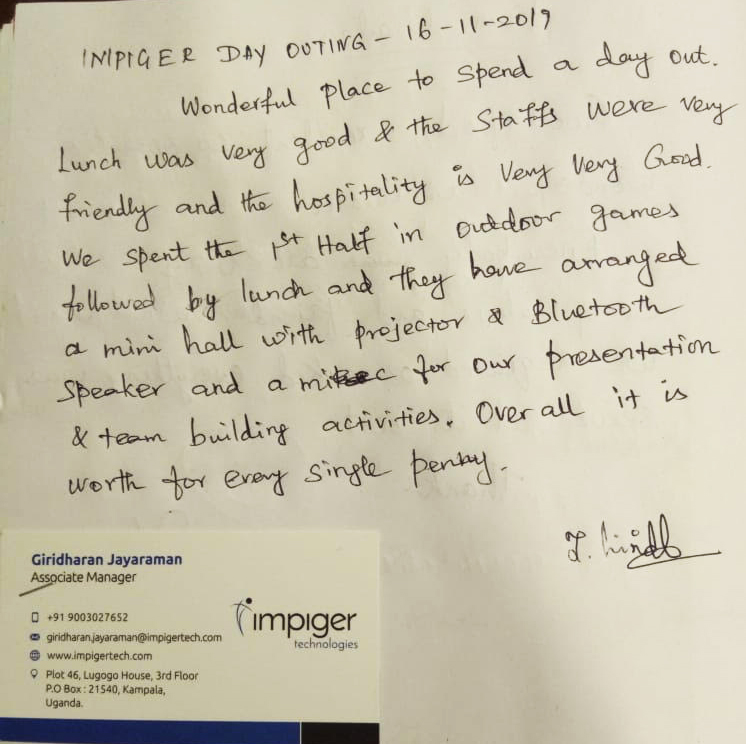 IMPIGER DAY OUTING - 16-11-2019
Wonderful place to spend a day out.
Lunch was very good & the staffs were very
friendly and the hospitality is very very Good.
We spent the 1st Half in outdoor games
followed by lunch and they have arranged
a mini hall with projector & Bluetooth
speaker and a mic for our presentation
& team building activities. Over all it is
worth for every single penny.
Giridharan Jayaraman
Associate Manager
+91 9003027652
giridharan.jayaraman@impigertech.com
www.impigertech.com
Plot 46, Lugogo House, 3rd Floor
P.O Box : 21540, Kampala,
Uganda.
impiger
technologies